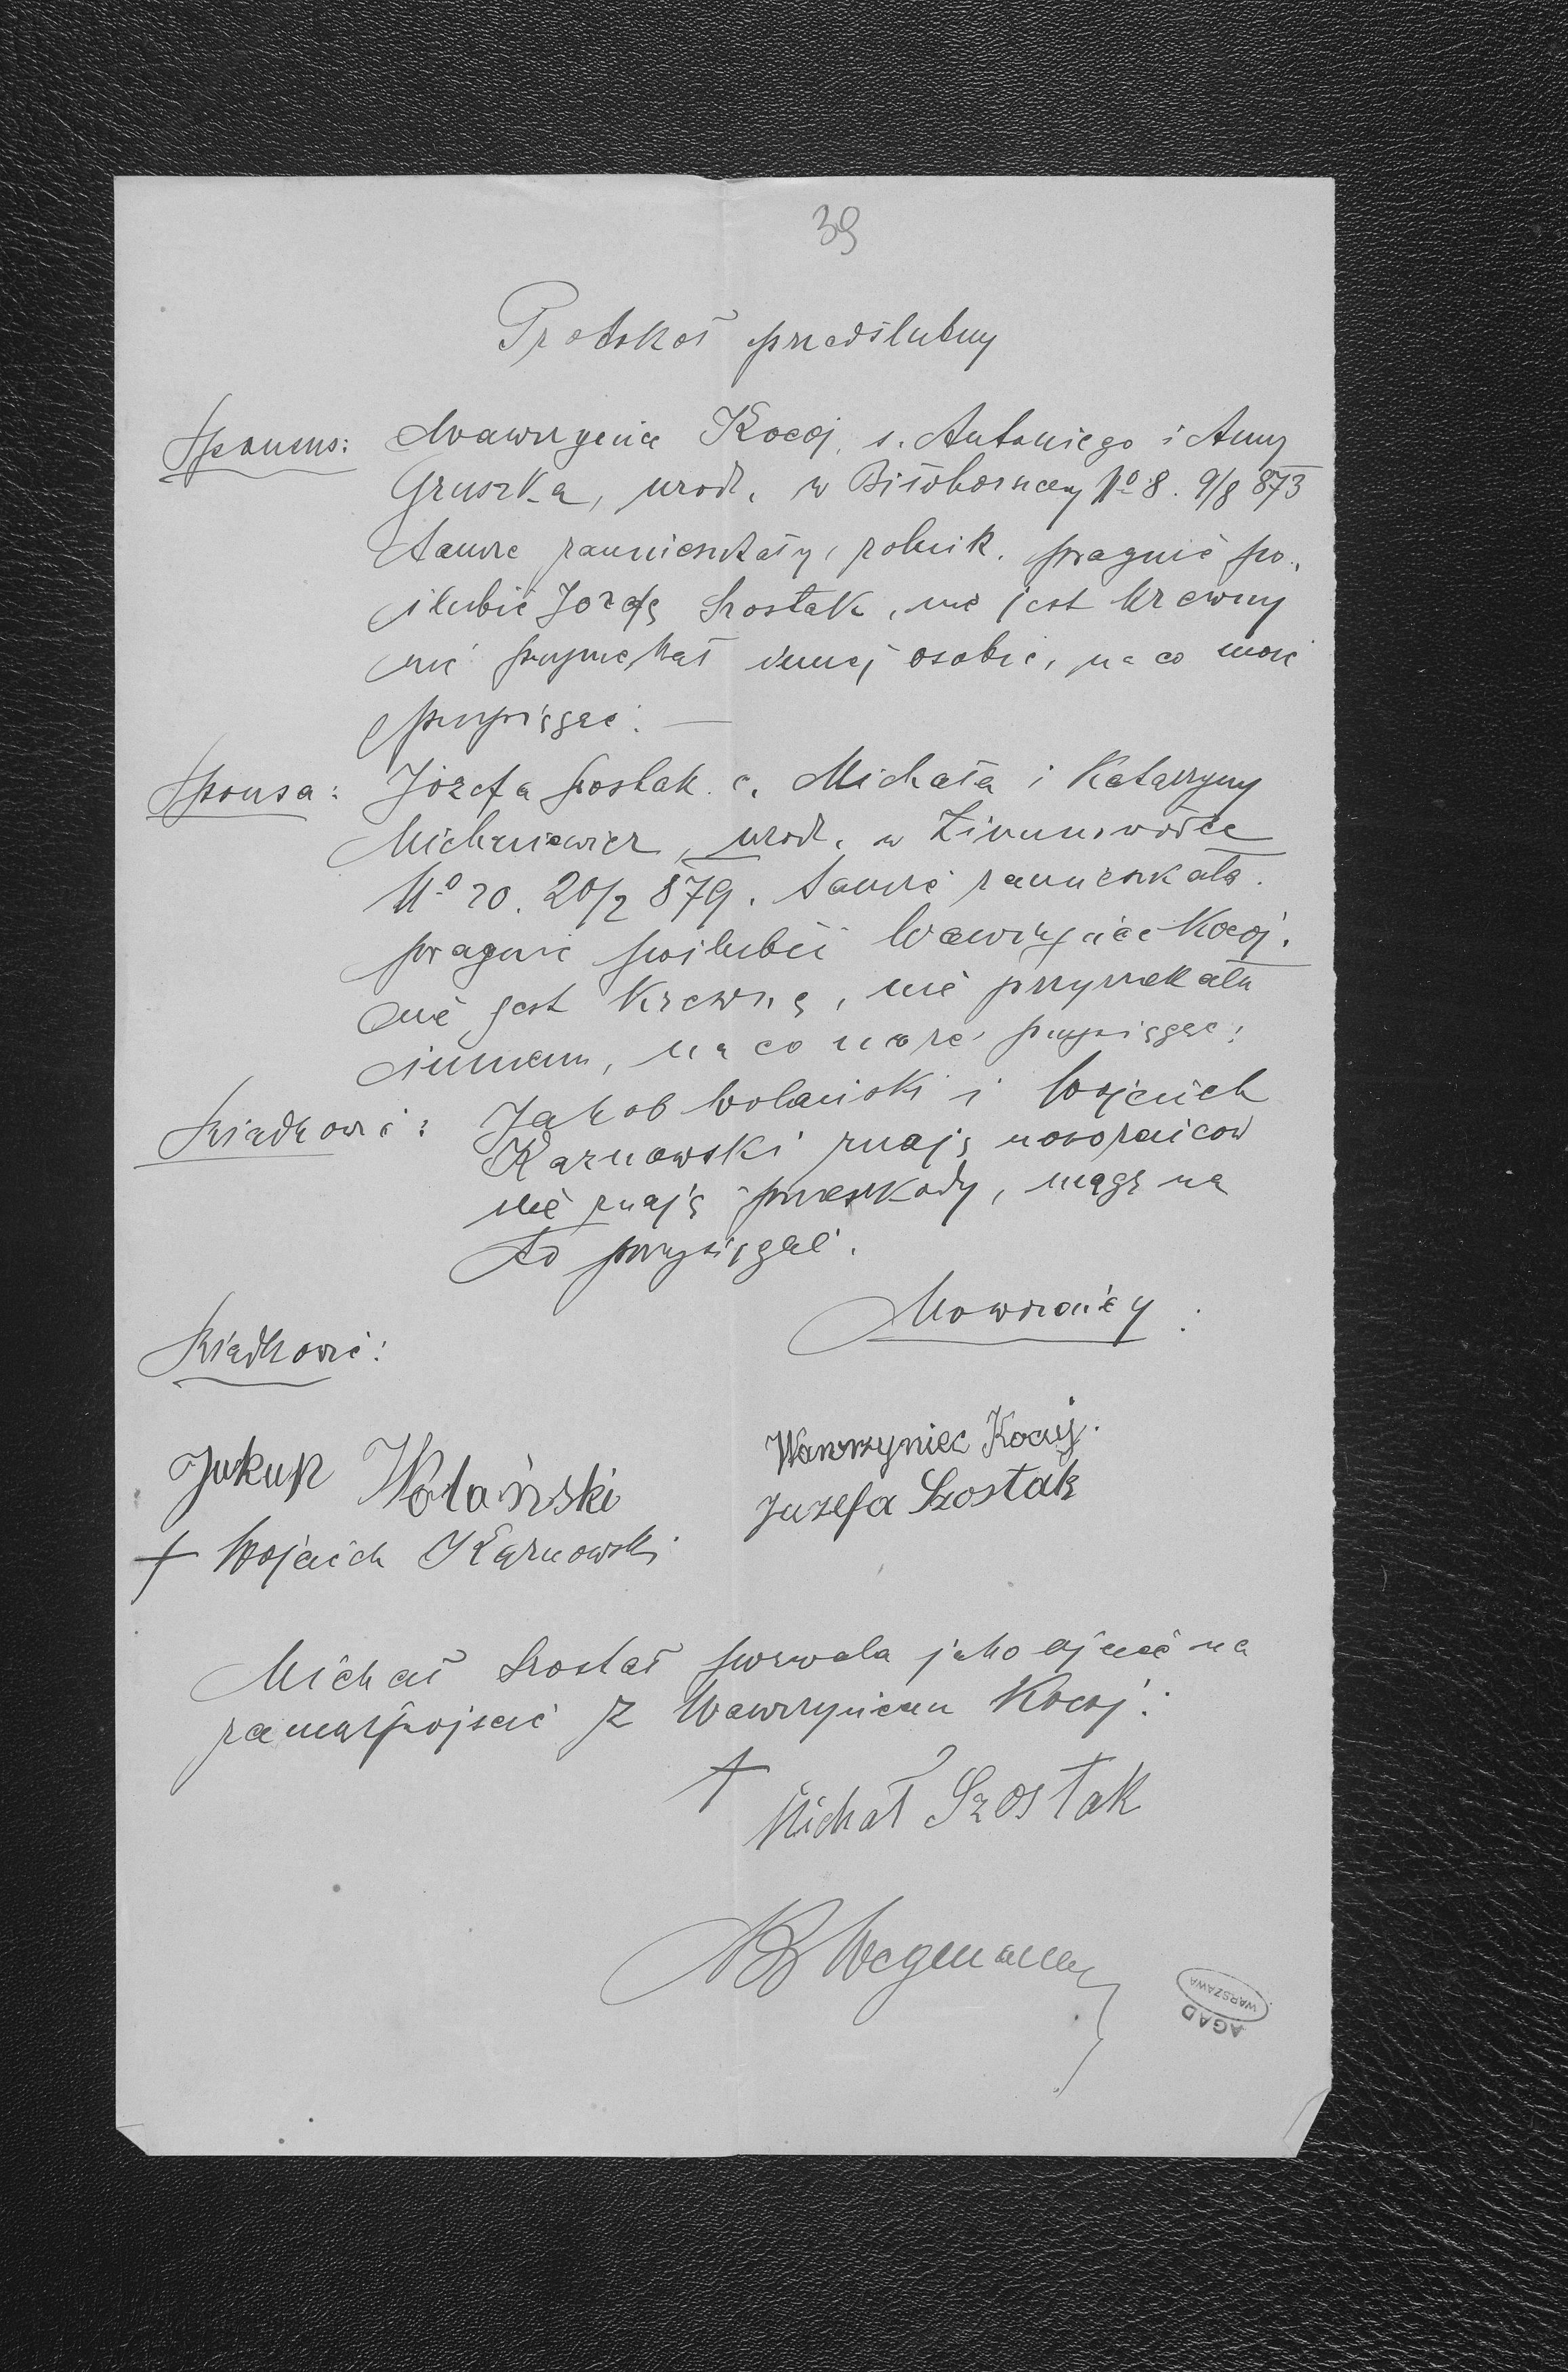 39
Protokoł przedślubny
Sponsus: Wawrzyniec Kocój, s. Antoniego i Anny
Gruszka, urodz. w No 8. 9/8 873
tamże zamieszkały, rolnik. pragnie po-
ślubić Józefę Szostak, nie jest krewny
nie przyrzekał innej osobie, na co może
przysięgać. —
Sponsa: Józefa Szostak c. Michała i Katarzyny
Michniewicz, urodz. w Zimnowodce
No 20. 20/2 879. tamże zamieszkała.
pragnie poślubić Wawrzyńca Kocój.
nie jest krewną, nie przyrzekała
innemu, na co może przysięgać:
Świadkowie: Jakób Wolański i Wojciech
Karnowski znają nowożeńców
nie znają przeszkody, mogą na
to przysięgać.
Nowożeńcy:
Świadkowie:
Jakup Wolański
Wawrzyniec Kocuj.
Juzefa Szostak
+ Wojciech Karnowski
Michał Szostak pozwala jako ojciec na
zamążpójście z Wawrzyńcem Kocój.
+ Michał Szostak
Wegemann
AGAD
WARSZAWA